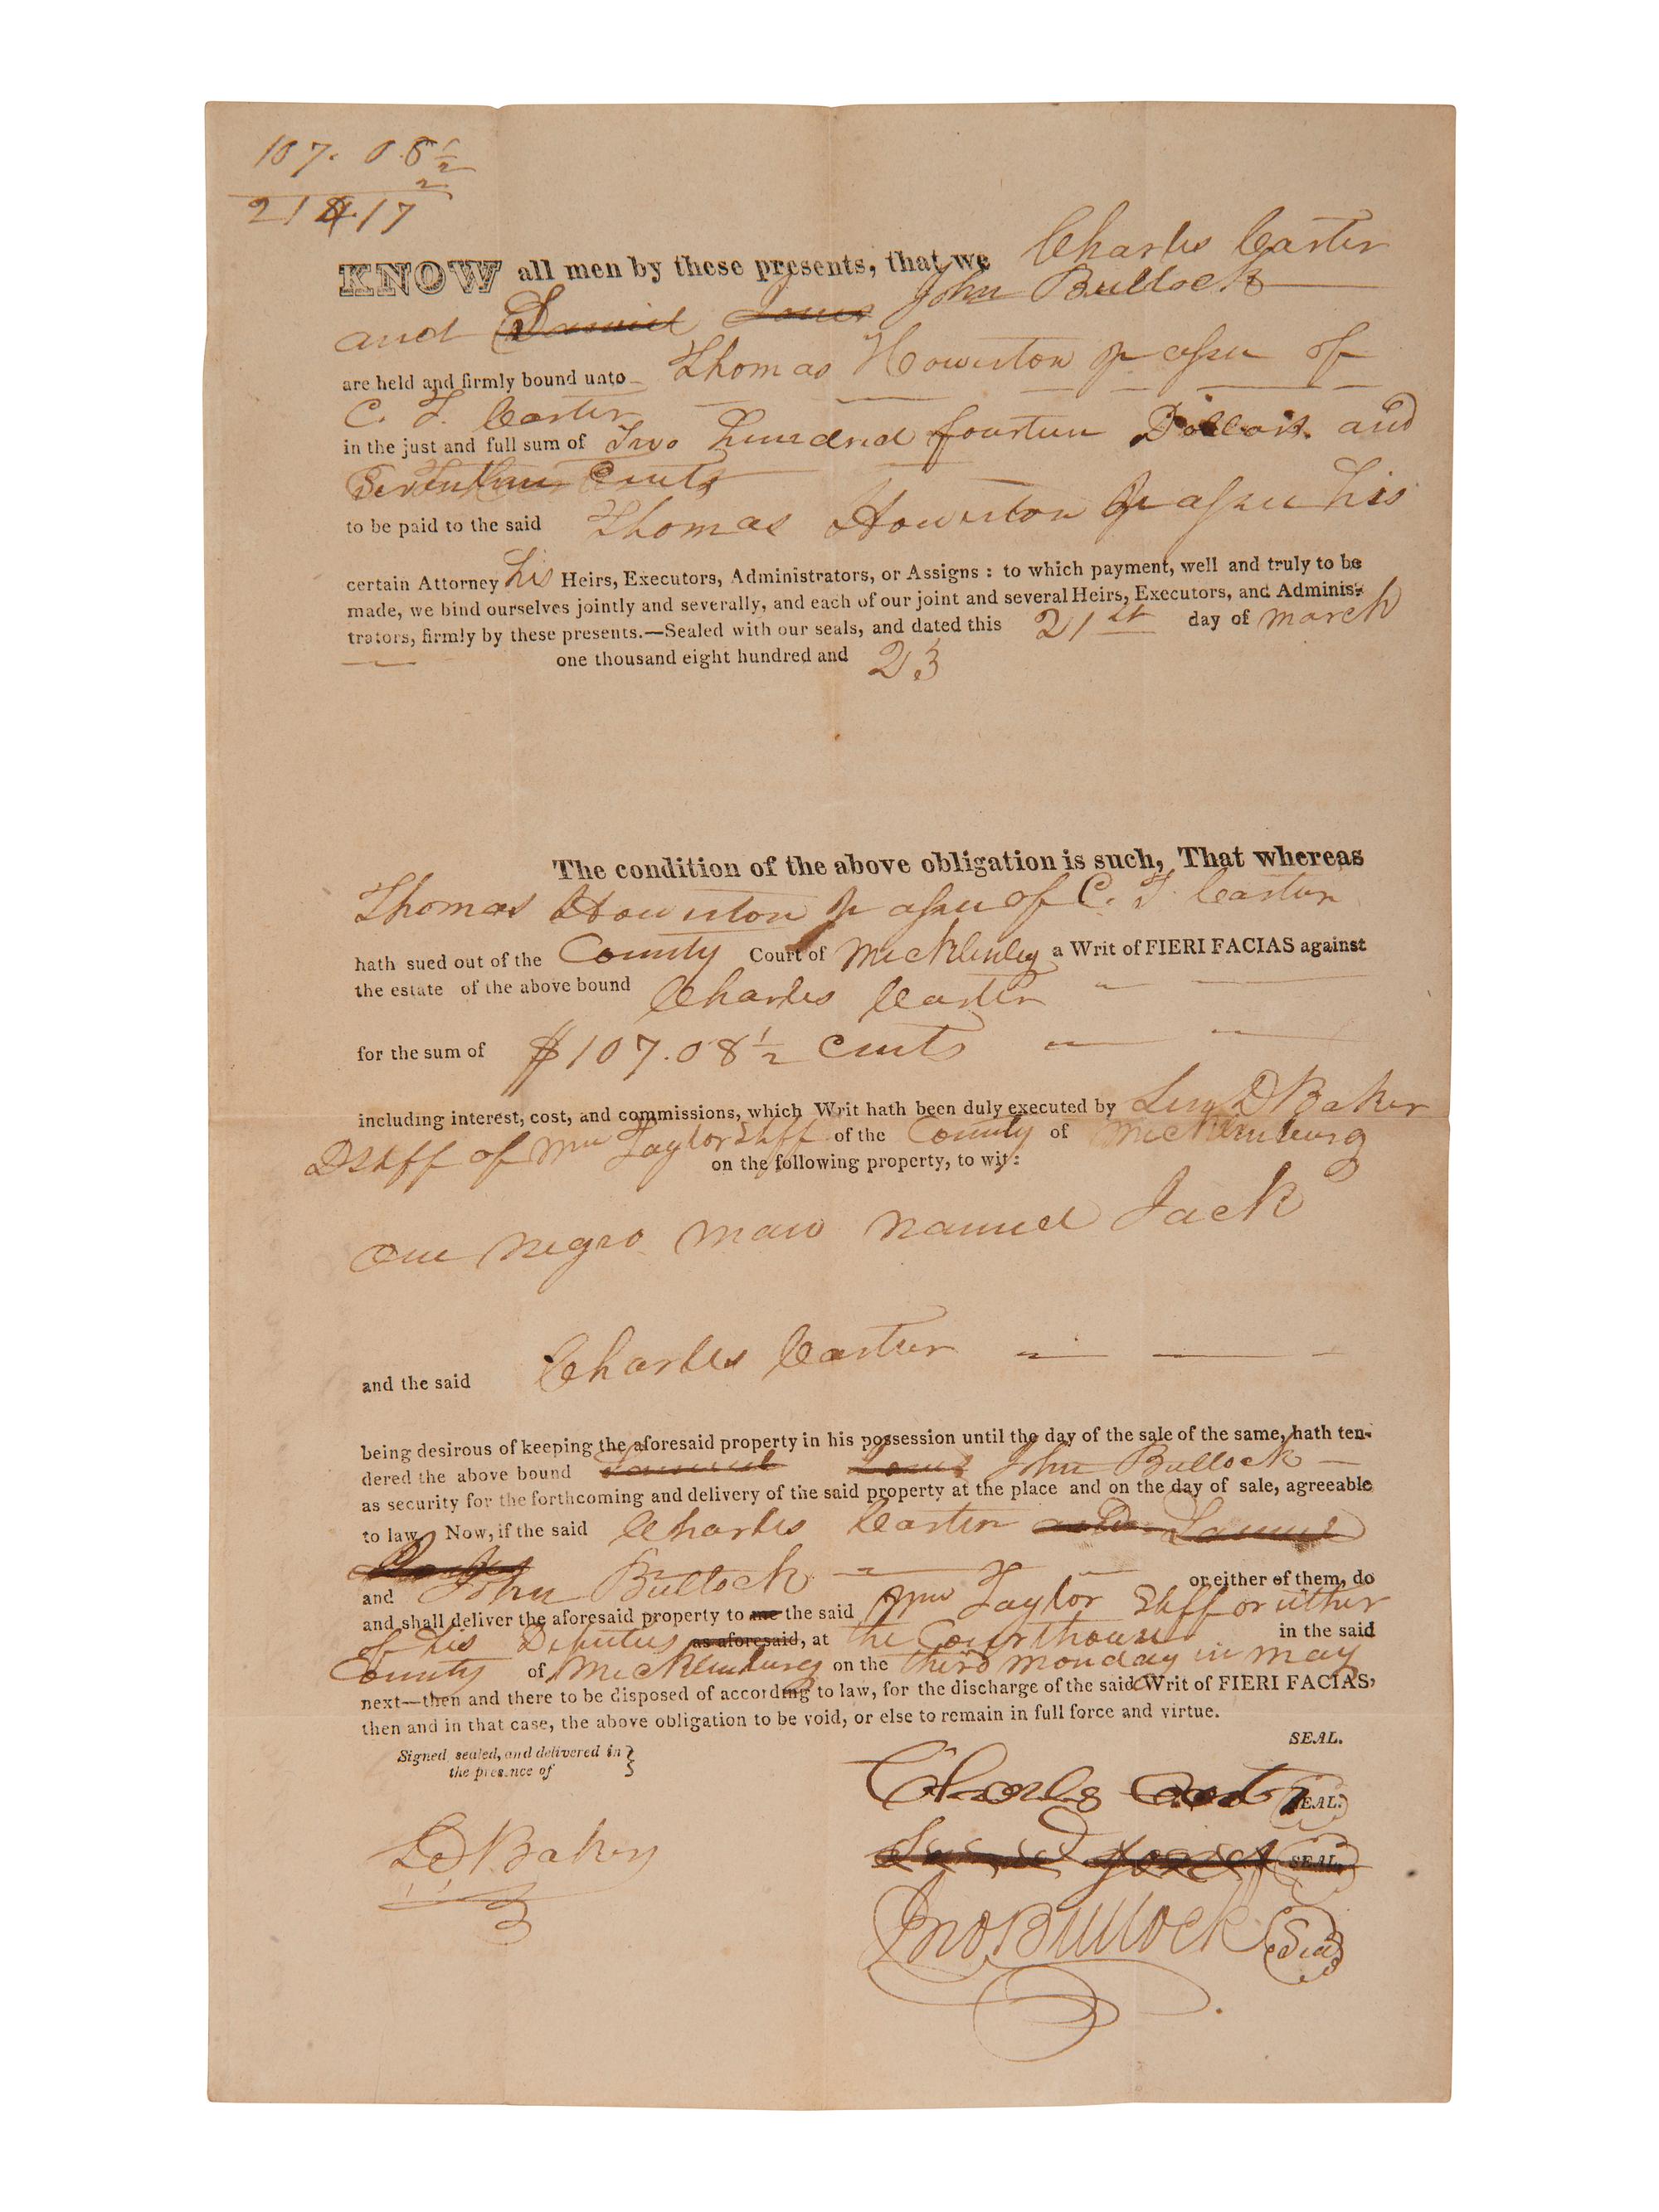 107. 08½
2
214.17
KNOW all men by these presents, that we Charles Carter
and John Bullock
are held and firmly bound unto Thomas Howerton of
C. T. Carter
in the just and full sum of Two hundred fourteen Dollars and
Seventeen Cents
to be paid to the said Thomas Howerton his
certain Attorney his Heirs, Executors, Administrators, or Assigns: to which payment, well and truly to be
made, we bind ourselves jointly and severally, and each of our joint and several Heirs, Executors, and Adminis-
trators, firmly by these presents.—Sealed with our seals, and dated this 21st day of march
one thousand eight hundred and 23
The condition of the above obligation is such, That whereas
Thomas Howerton of C. T Carter
hath sued out of the County Court of a Writ of FIERI FACIAS against
the estate of the above bound Charles Carter
for the sum of $107.08½ Cents
including interest, cost, and commissions, which Writ hath been duly executed by D Baker
DShff of Wm Taylor Shff of the County of Mecklenburg
on the following property, to wit:
one negro man named Jack
and the said Charles Carter
being desirous of keeping the aforesaid property in his possession until the day of the sale of the same, hath ten-
dered the above bound John Bullock
as security for the forthcoming and delivery of the said property at the place and on the day of sale, agreeable
to law. Now, if the said Charles Carter
and John Bullock or either of them, do
and shall deliver the aforesaid property to me the said Wm Taylor Shff or either
of his Deputies as aforesaid, at the Courthouse in the said
County of Mecklenburg on the third monday in may
next—then and there to be disposed of according to law, for the discharge of the said Writ of FIERI FACIAS,
then and in that case, the above obligation to be void, or else to remain in full force and virtue.
SEAL.
Signed sealed, and delivered in }
the presence of
Charles Carter SEAL.
L D Baker
SEAL.
Jno Bullock Seal